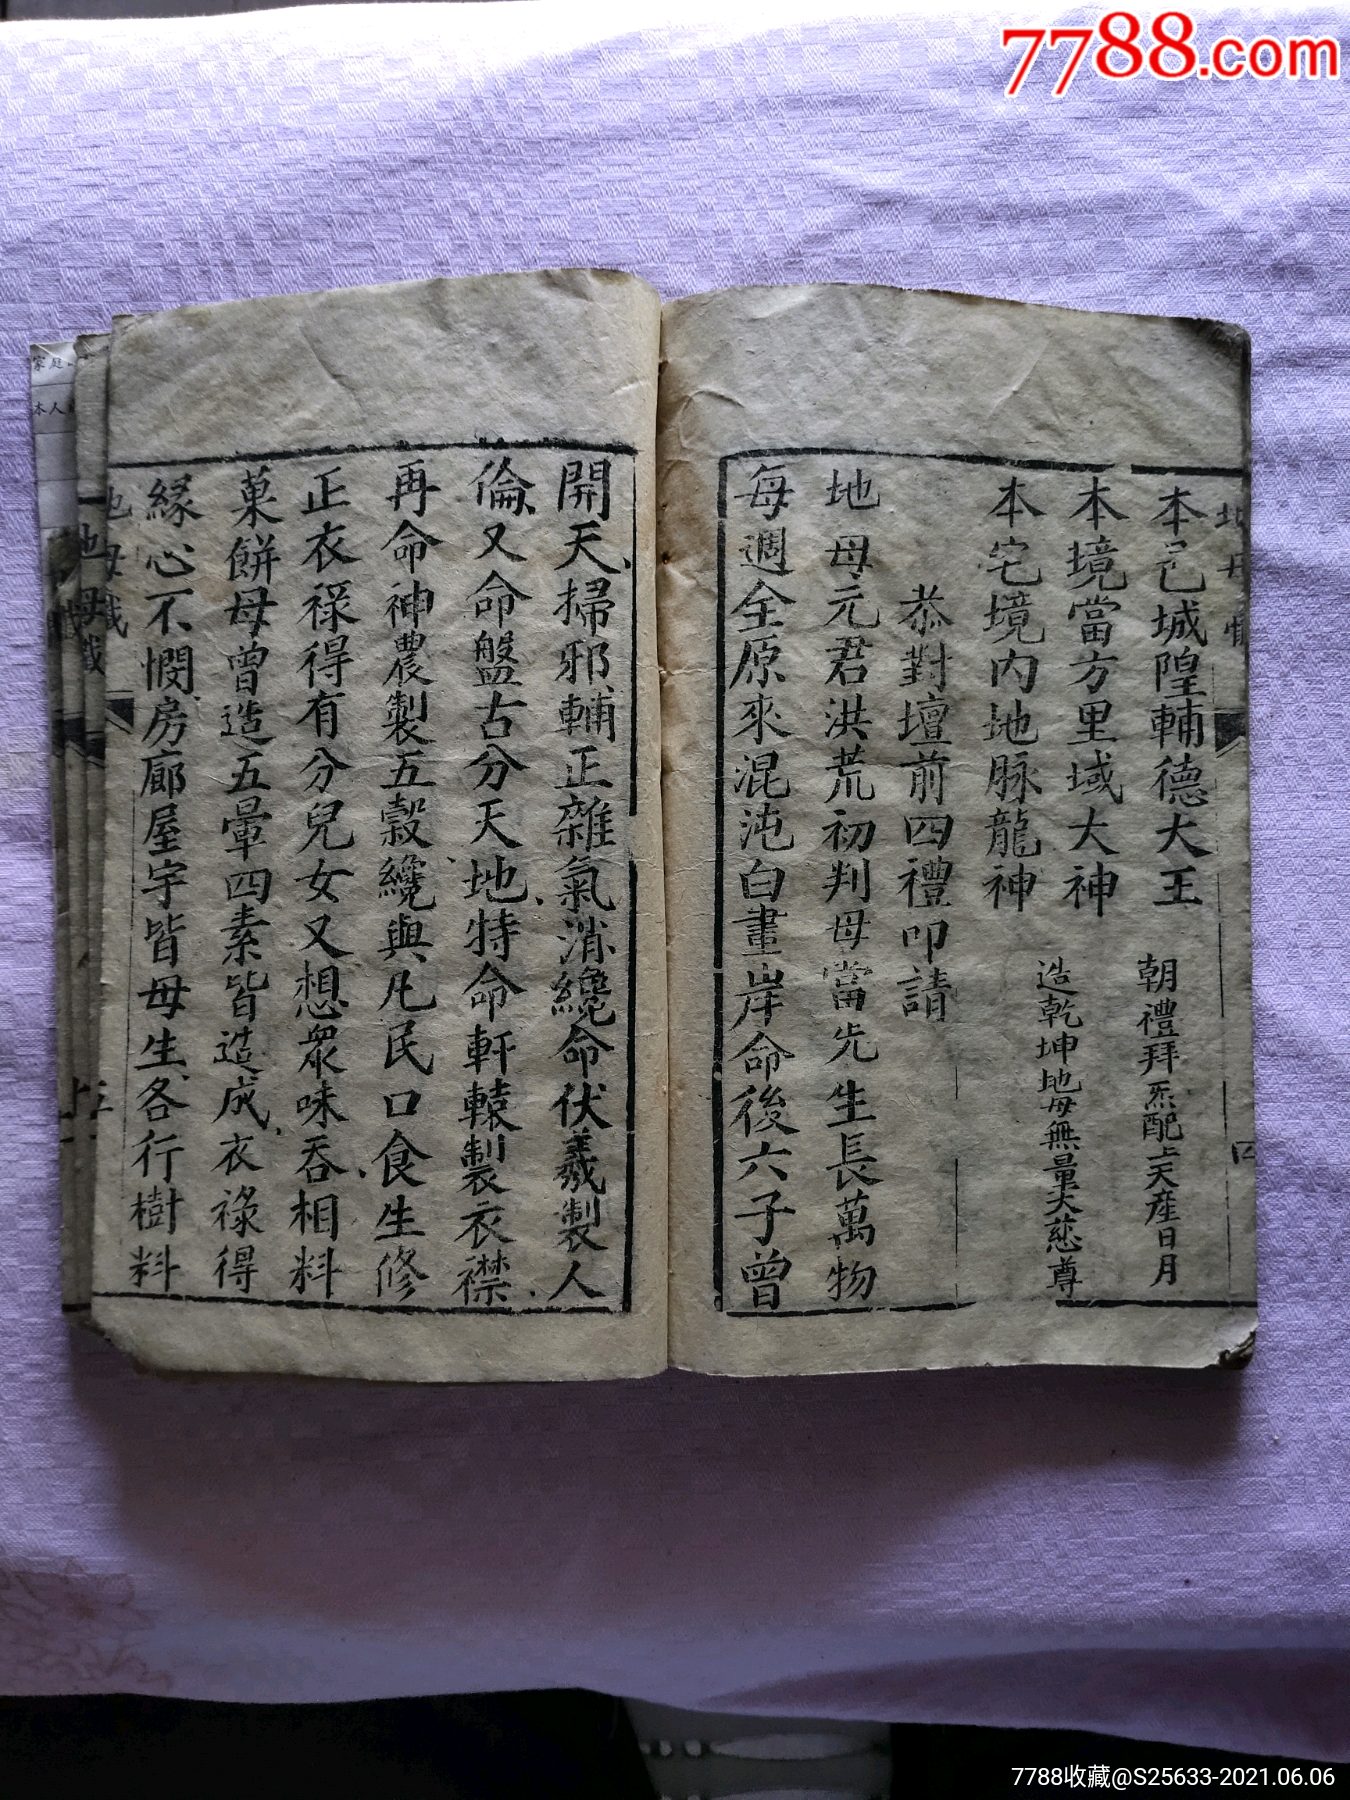 7788.com
本邑城隍輔德大王
朝禮拜炁配上天産日月
本境當方里域大神
造乾坤地母無量大慈尊
本宅境内地脉龍神
恭對壇前四禮叩請
地母元君洪荒初判母當先生長萬物
每週全原來混沌白晝岸命後六子曾
開天掃邪輔正雜氣消纔命伏羲製人
倫又命盤古分天地特命軒轅製衣襟
再命神農製五穀纔與凡民口食生修
正衣祿得有分兒女又想衆味吞相料
菓餅母曾造五暈四素皆造成衣祿得
緣心不憫房廊屋宇皆母生各行樹料
地母懺
地母懺
四
五
家庭
本人
7788收藏@S25633-2021.06.06